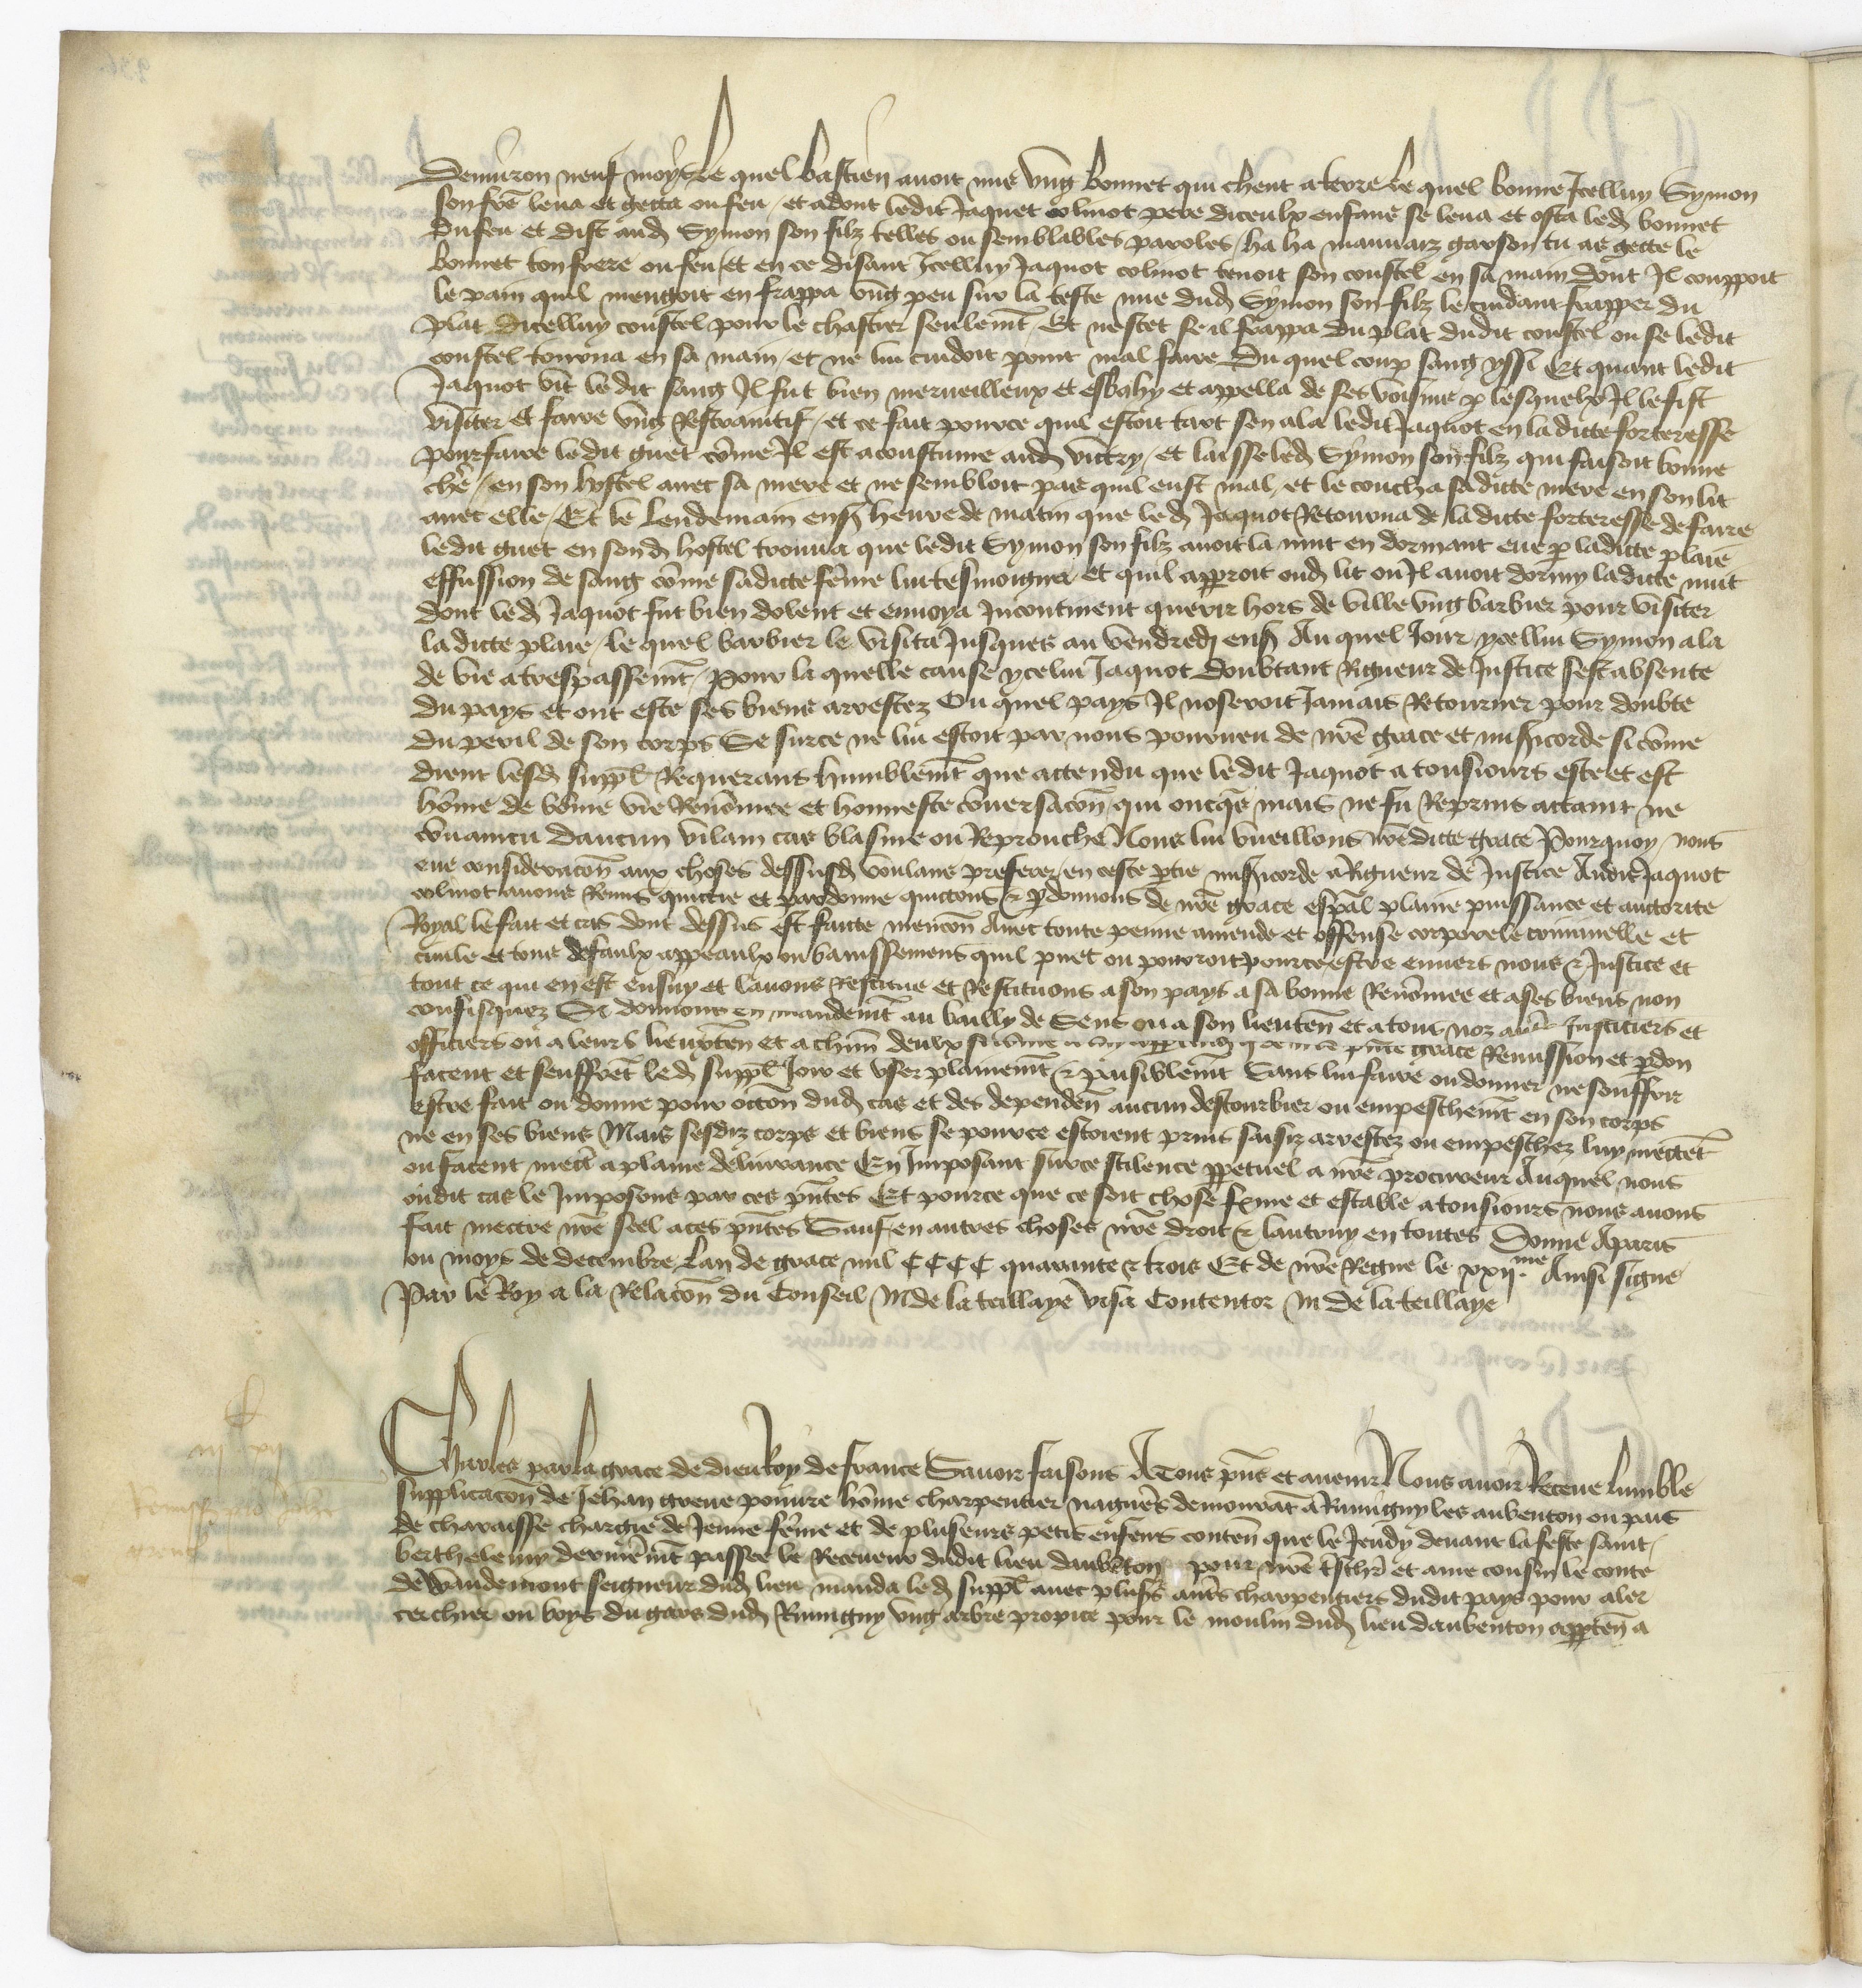 Denviron neuf moys le quel bastien avoit une ung bonnet qui cheut a terre le quel bonnet Icelluy Symon
son fre leva et getta ou feu / et adont ledit Jaquet colinot pere diceulx enfans se leva et osta led bonnet
du feu et dist aud Symon son filz telles ou semblables paroles / ha ha mauvaiz garson tu as gette le
bonnet ton frere ou feu / et en ce disant Icelluy Jaquot colinot tenoit son coustel en sa main dont Il couppoit
le pain quil mengoit en frappa ung peu sur la teste nue dud Symon son filz le cuidant frapper du
plat dicelluy coustel pour le chastier seulemt Et nescet se il frappa du plat dudit coustel ou se ledit
coustel tourna en sa main / et ne lui cuidoit point mal faire Du quel coup sang yssi Et quant ledit
Jaquot vit ledit sang Il fut bien merveilleux et esbahy et appella de ses voisins p lesquelx Il le fist
visiter et faire ung Restraintif / et ce fait pource quil estoit tart sen ala ledit Jaquot en la dicte forteresse
pour faire ledit guet come Il est acoustume aud vitry / et laisse led Symon son filz qui faisoit bonne
chere / en son hostel avec sa mere et ne sembloit pas quil eust mal / et le coucha sadicte mere en son lit
avec elle / Et le Lendemain ens heure de matin que led Jaquot Retourna de ladicte forteresse de faire
ledit guet en sond hostel trouva que ledit Symon son filz avoit la nuit en dormant eue p ladicte plaie
effussion de sang come sadicte feme lui tesmoigna / et quil apparoit oud lit ou Il avoit dormy ladicte nuit
dont led Jaquot fut bien dolent et envoya Incontinent querir hors de ville ung barbier pour visiter
ladicte plaie / le quel barbier le visita Jusques au vendredi ens Au quel Jour ycellui Symon ala
de vie a trespassemt / pour la quelle cause ycelui Jaquot doubtant Rigueur de Justice sest absente
du pays et ont este ses biens arrestez Ou quel pays Il noseroit Jamais Retourner pour doubte
du peril de son corps Se surce ne lui estoit par nous pourveu de nre grace et misericorde si come
dient lesd suppl Requerans humblemt que attendu que ledit Jaquot a tousiours este et est
home de bonne vie Renomee et honneste conversacon qui oncqs mais ne fu Reprins attaint ne
convaincu daucun vilain cas blasme ou Reprouche Nous lui vueillons nre dicte grace Pourquoy / nous
eue consideracon aux choses dessusd voulans preferer / en ceste ptie misericorde a Rigueur de Justice Audit Jaquot
colinot avons Remis quictie et pardonne quictons & pdonnons de nre grace especial plaine puissance et auctorite
Royal le fait et cas dont dessus est faicte mencon Avec toute peine amende et offense corporele criminelle et
civile et tous defaulx appeaulx ou banissemens quil puet ou pourroit pource estre envers nous & Justice et
tout ce qui en est ensuy et lavons Restitue et Restituons a son pays a sa bonne Renomee et a ses biens non
confisquez Si donnons en mandemt au bailly de Sens ou a son lieuten et a tous noz aus Justiciers et
officiers ou a leurs lieuxten et a chun deulx pnte grace Remission et pdon
facent et seuffret led suppl Joir et user plainemt & paisiblemt Sans lui faire ou donner ne souffrir
estre fait ou donne pour occon dud cas et des dependen aucun destourbier ou empeschemt en son corps
ne en ses biens Mais sesdiz corps et biens se pource estoient prins saisiz arrestez ou empeschez luy mettet
ou facent mect a plaine delivrance En Imposant surce scilence ppetuel a nre procureur Auquel nous
oudit cas le Imposons par ces pntes Et pource que ce soit chose ferme et estable a tousiours nous avons
fait mectre nre seel a ces pntes Sauf en autres choses nre droit & lautruy en toutes Donne A paris
ou moys de decembre Lan de grace mil CCCC quarante & trois Et de nre Regne le xxii me Ainsi signe
Par le Roy a la Relacon du Conseil M de la teillaye visa Contentor M De la teillaye
Charles par la grace de dieu Roy de france Savoir faisons A Tous pns et avenir Nous avoir Receue Lumble
supplicacon de Jehan greue pouvre home charpentier nagueres demourat a Rumigny les aubenton ou pais
de tharaisse chargie de Jeune feme et de pluseurs petis enfens conten que le Jeudy devant la feste saint
berthelemy derrniemt passee le Receveur dudit lieu daubeton pour nre tscher et ame cousin le conte
de Vaudemont seigneur dud lieu manda led suppl avec plusrs autres charpentiers dudit pays pour aler
cerchier ou boys du gars dud Rumigny ung arbre propice pour le moulin dud lieu daubenton apparten a